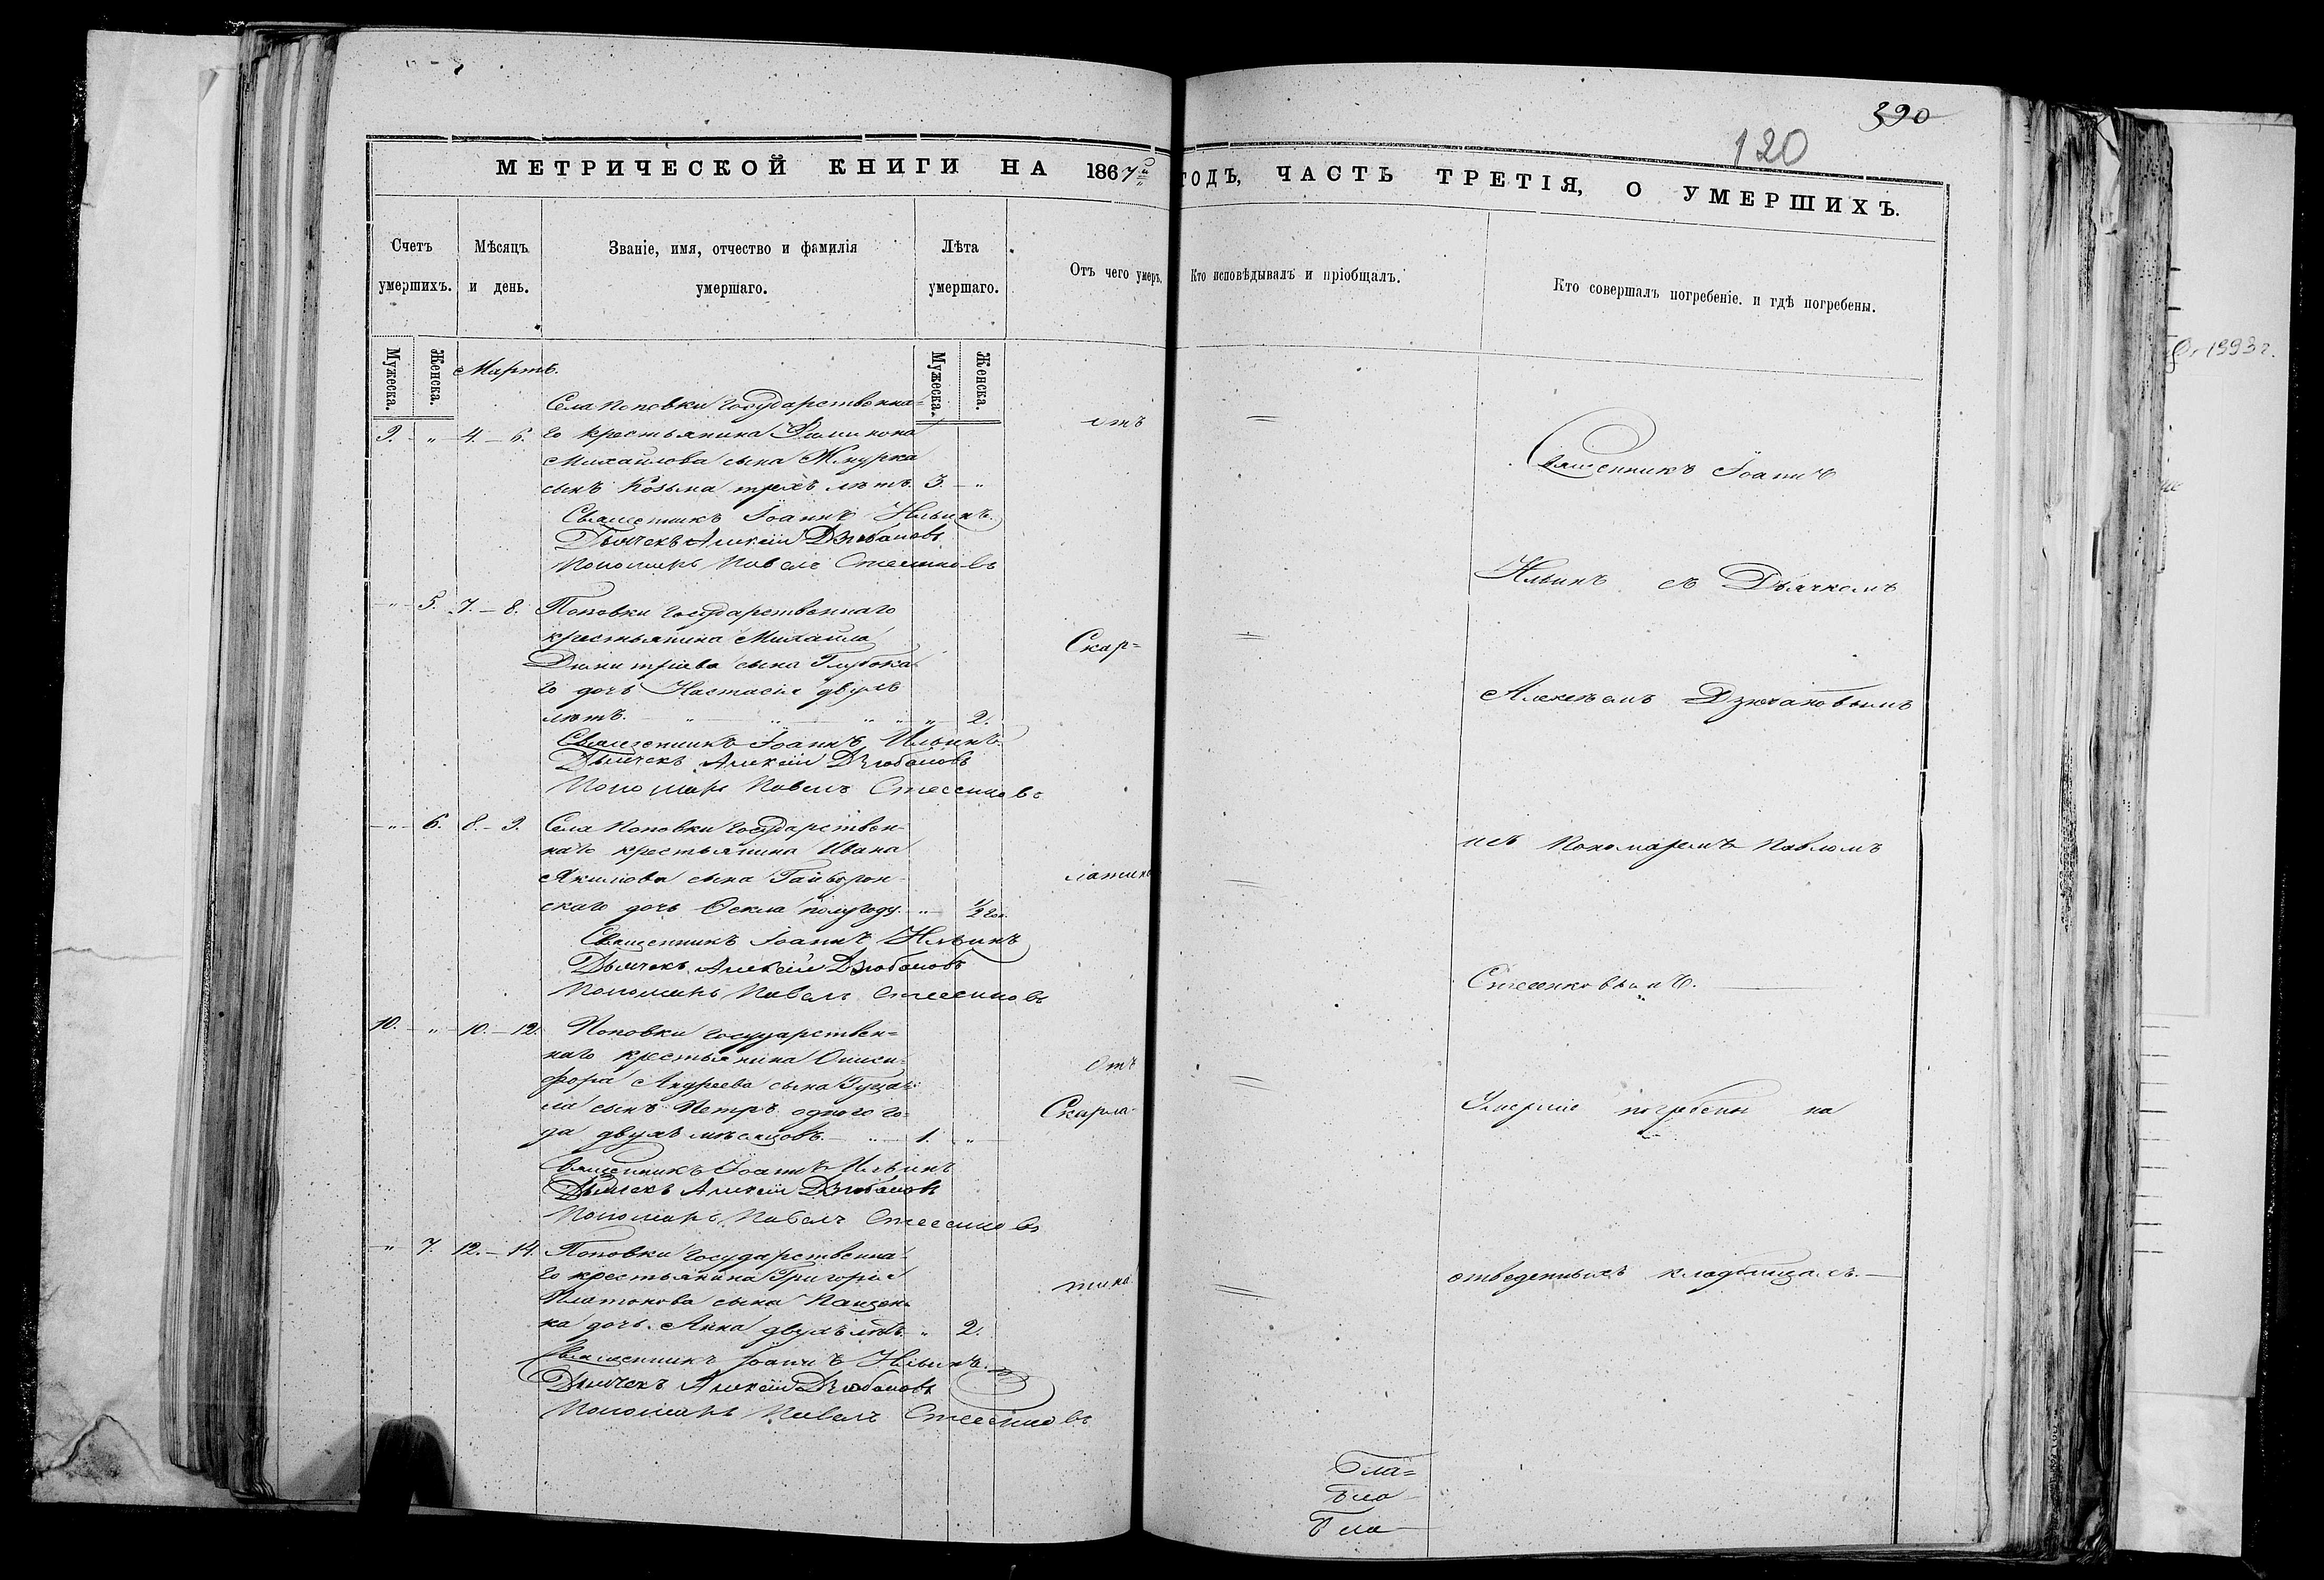 390
120
МЕТРИЧЕСКОЙ КНИГИ НА 1867й ГОДЪ, ЧАСТЬ ТРЕТІЯ, О УМЕРШИХЪ.
Счетъ умершихъ.
Мѣсяцъ и день.
Званіе, имя, отчество и фамилія умершаго.
Лѣта умершаго.
Отъ чего умеръ.
Кто исповѣдывалъ и пріобщалъ.
Кто совершалъ погребеніе. и гдѣ погребены.
Мужеска. Женска.
Мужеска. Женска.
Мартъ.
Села Поповки Государственна=
9. " 4. — 6. го крестьянина Филимона
Михайлова сына Жмурка
сынъ Козьма трехъ лѣтъ. 3. — "
Священникъ Іоаннъ Ильинъ.
Дьячекъ Алексій Дзюбановъ
Пономарь Павелъ
" 5. 7. — 8. Поповки Государственнаго
крестьянина Михаила
Димитріева сына Глубока=
го дочь Настасія двухъ
лѣтъ. — " — " — " — 2.
Священникъ Іоаннъ Ильинъ.
Дьячекъ Алексій Дзюбановъ
Пономарь Павелъ
" 6. 8. — 9. Села Поповки Государствен-
наго крестьянина Ивана
Якимова сына Гайворон-
скаго дочь Ѳекла полугоду. " — 1/2 год.
Священникъ Іоаннъ Ильинъ
Дьячекъ Алексій Дзюбановъ
Пономарь Павелъ
10. " 10. — 12. Поповки Государствен=
наго крестьянина Ониси-
фора Андреева сына
ла сынъ Петръ одного го-
да двухъ мѣсяцовъ. — " — 1. "
Священникъ Іоаннъ Ильинъ
Дьячекъ Алексій Дзюбановъ
Пономарь Павелъ
" 7. 12. — 14. Поповки Государственна-
го крестьянина Григорія
Платонова сына Пащен-
ка дочь Анна двухъ лѣтъ. " 2.
Священникъ Іоаннъ Ильинъ.
Дьячекъ Алексій Дзюбановъ
Пономарь Павелъ
отъ
Скар=
латины
отъ
Скарла-
тины
Священникъ Іоаннъ
Ильинъ съ Дьячкомъ
Алексѣемъ Дзюбановымъ
и съ Пономаремъ Павломъ
Умершіе погребены на
отведенныхъ кладбищахъ. —